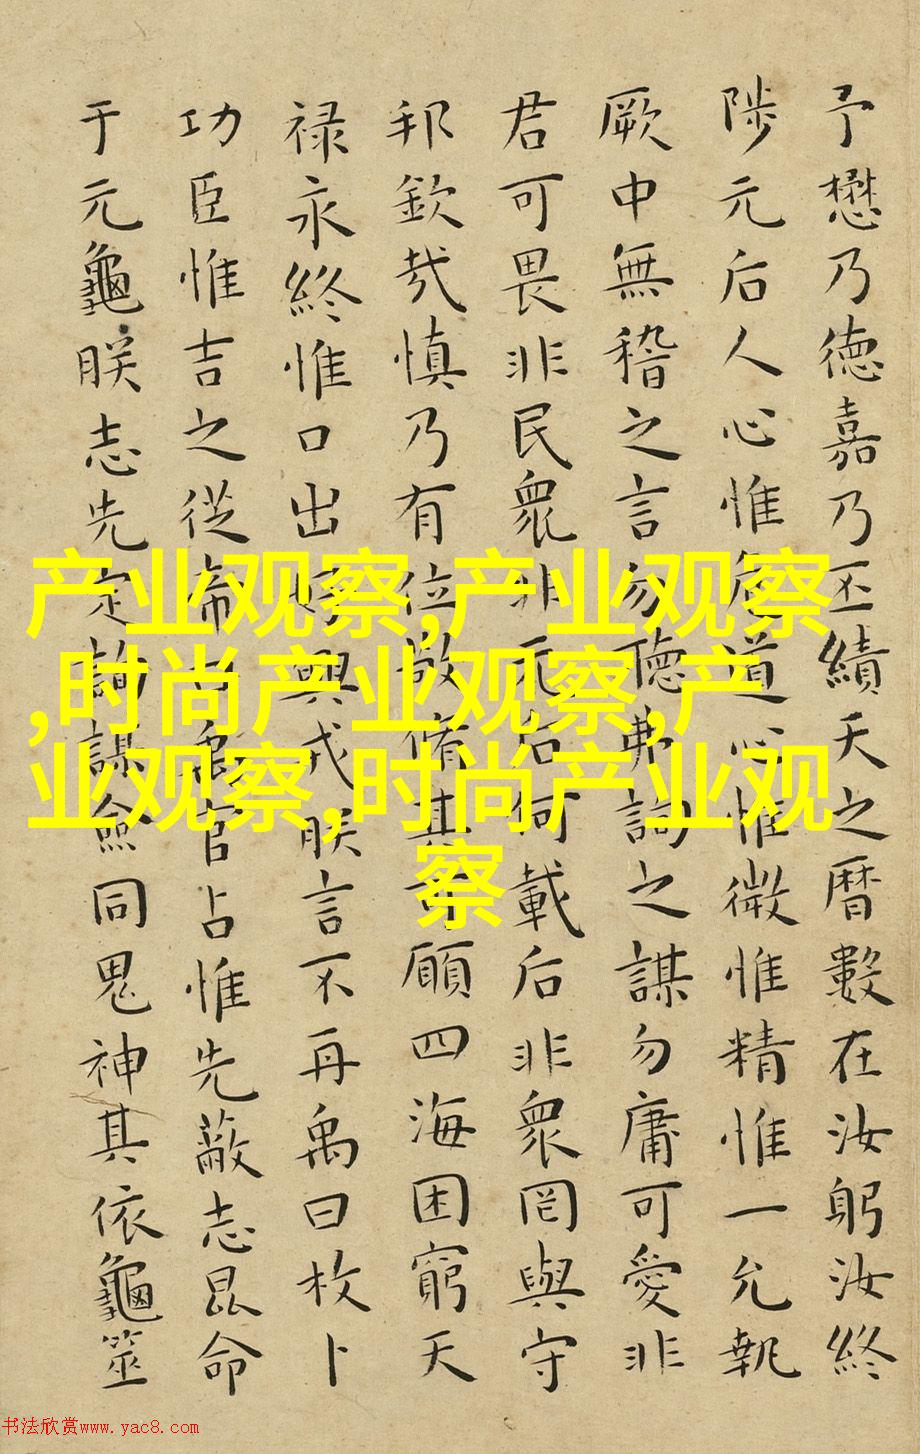 予懋乃德嘉乃丕績天之曆數在汝躬汝終
陟元后人心惟危道心惟微惟精惟一允執
厥中無稽之言勿聽弗詢之謀勿庸可愛非
君可畏非民眾非元后何載后非眾罔與守
邦欽哉慎乃有位敬脩其可願四海困窮天
禄永終惟口出好興戎朕言不再禹曰枚卜
功臣惟吉之從帝曰禹官占惟先蔽志昆命
于元龜朕志先定詢謀僉同鬼神其依龜筮
产业观察,产业观察
,时尚产业观察,产
业观察,时尚产业观
察
书法欣赏www.yac8.com